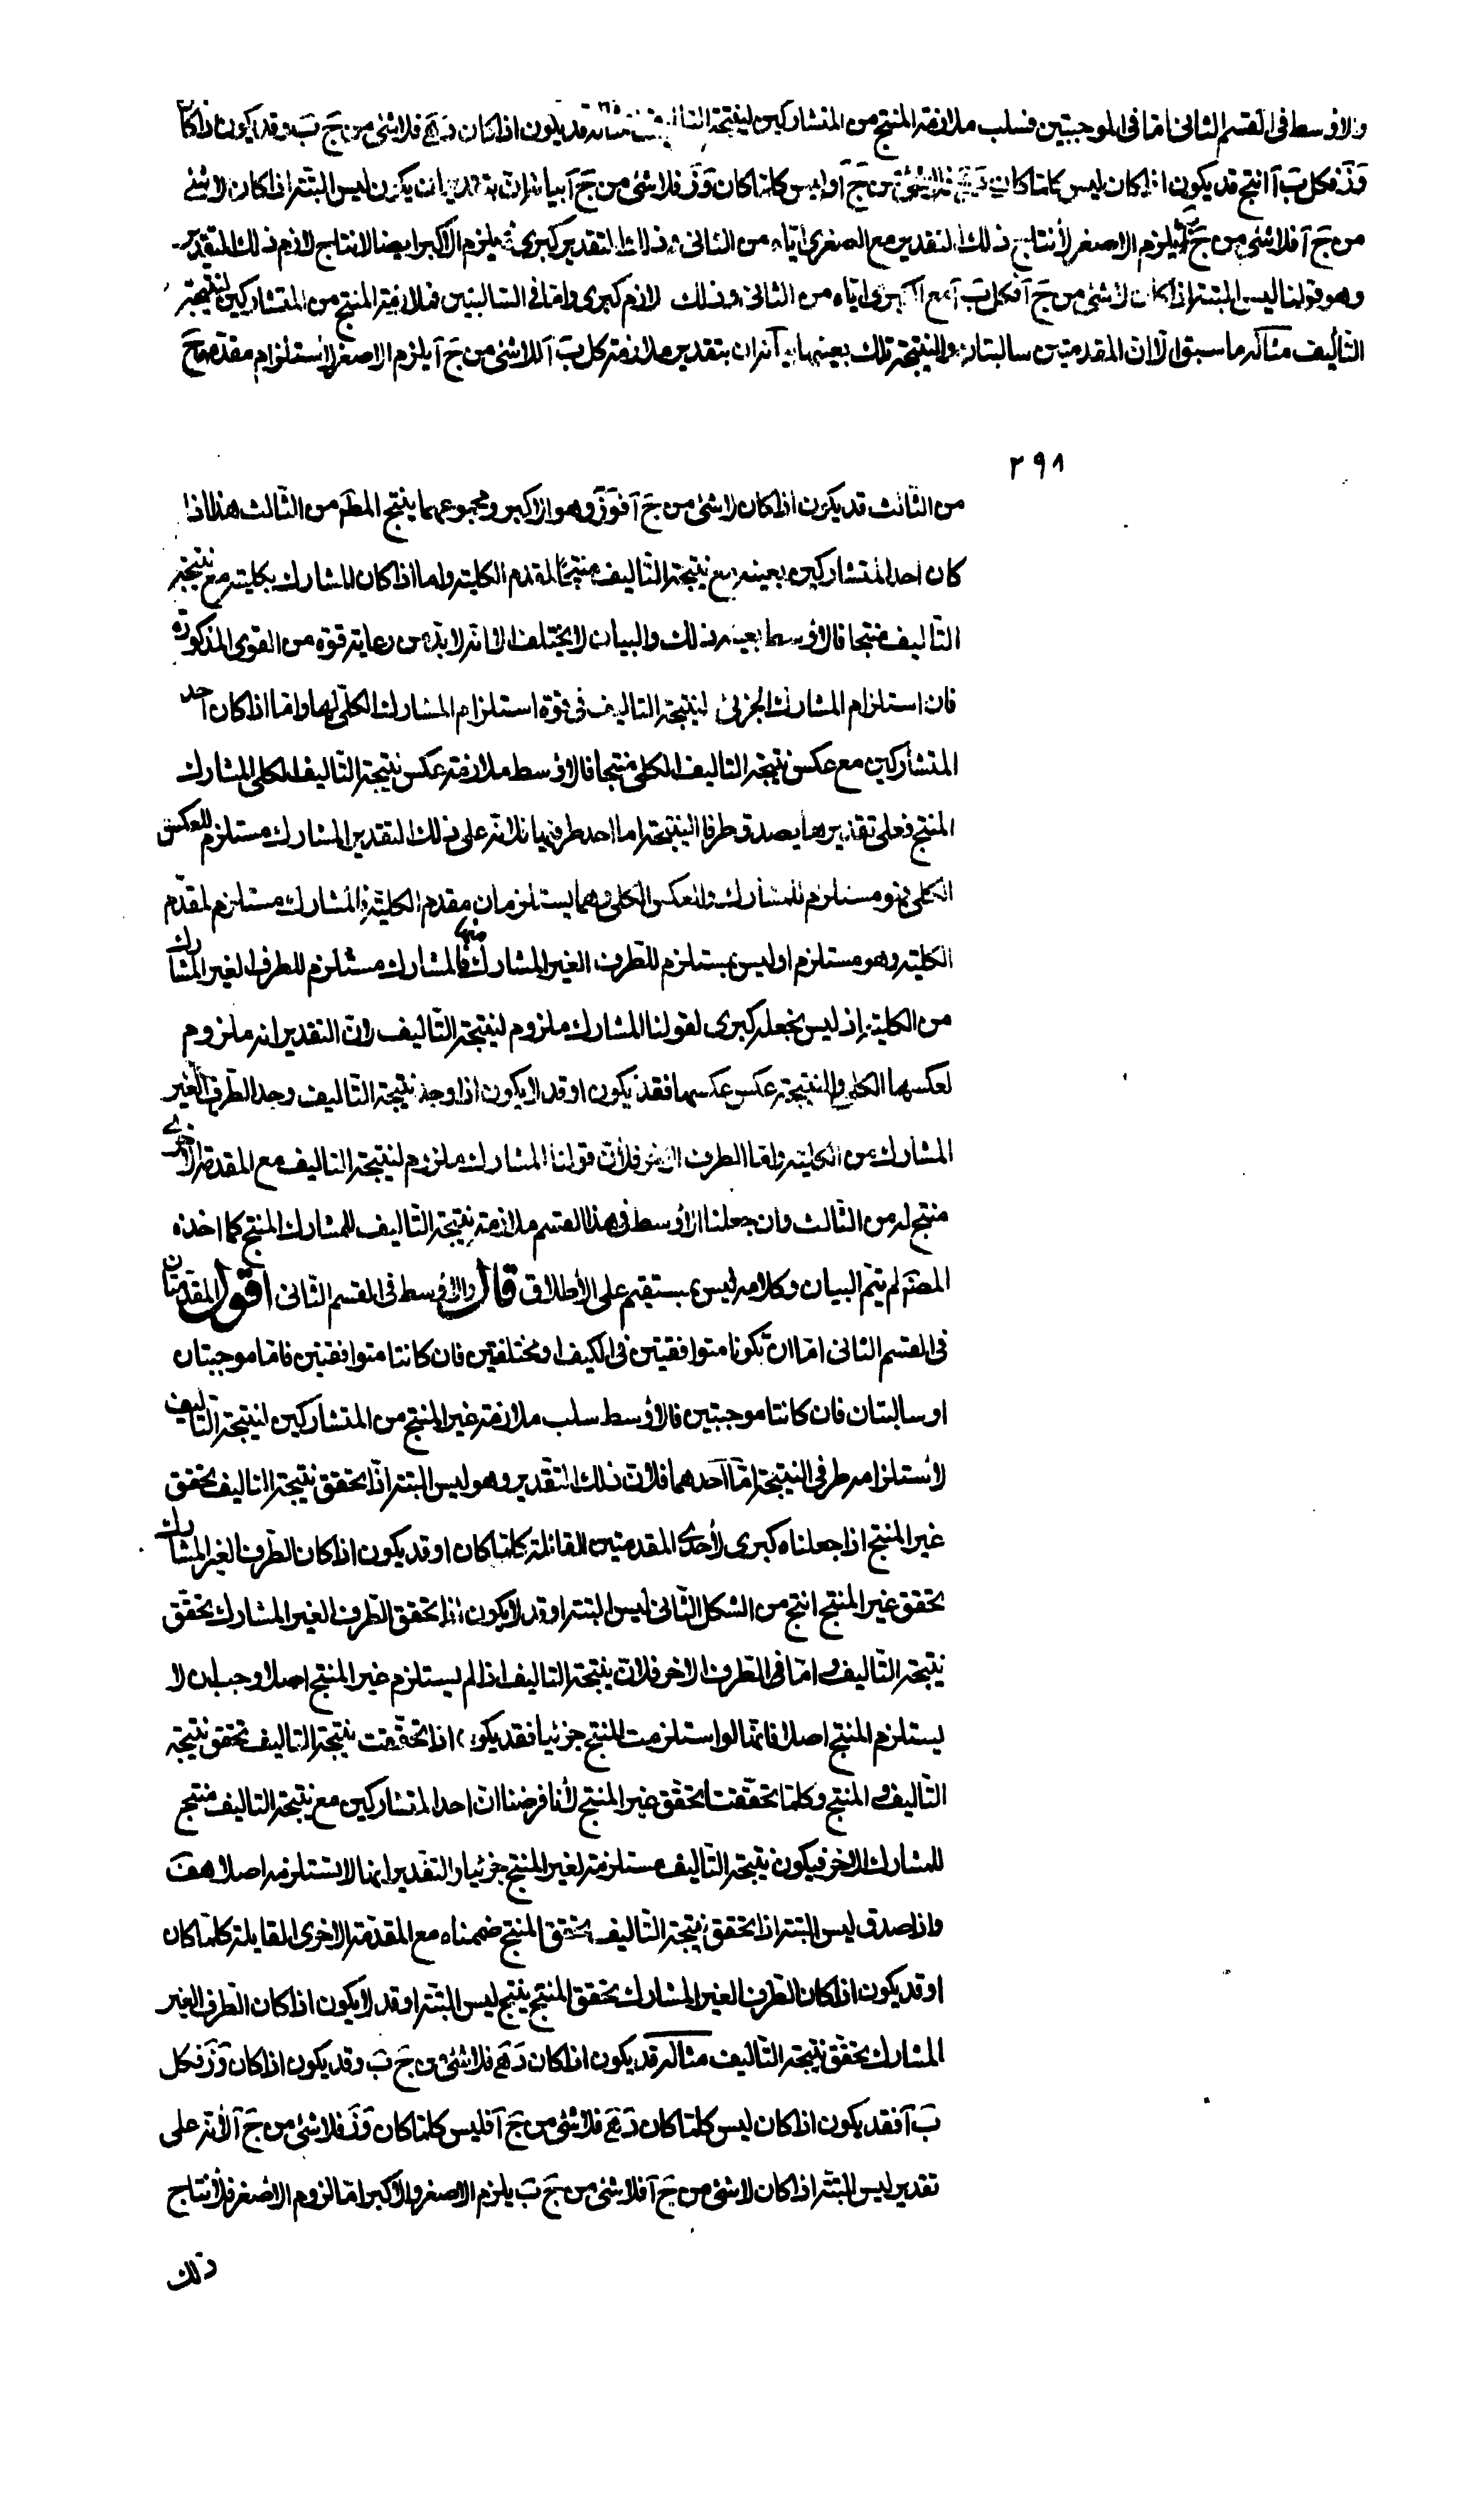 والاوسط فى القسم الثانى اما فى الموجبتين فسلب ملازمة المنتج من المتشاركين لنتيجة التاليف مثاله قد يكون اذا كان دَهَ فلا شئ من جَ بَ وقد يكون اذا كان
وَزَ فكل بَ آ انتج قد يكون اذا كان ليس كلما كان دَهَ فلا شئ من جَ آ وليس كلما كان وَزَ فلا شئ من جَ آ بيانه ان بتقدير ان يكون ليس البتة اذا كان لا شئ
من جَ آ فلا شئ من جَ بَ يلزم الاصغر لأنتاج ذلك التقدير مع الصغرى اياه من الثانى وذلك التقدير كبرى ثم يلزم الاكبر ايضا لانتاج لازم ذلك التقدير
وهو قولنا ليس البتة اذا كان لا شئ من جَ آ فكل بَ آ مع الكبرى اياه من الثانى وذلك لازم كبرى واما فى السالبتين فملازمة المنتج من المتشاركين لنتيجة
التأليف مثاله ما سبق الا ان المقدمتين سالبتان والنتيجة تلك بعينها بيانه ان بتقدير ملازمة كل بَ آ للا شئ من جَ آ يلزم الاصغر لاستلزام مقدمها جَ
٢٩٨
من الثالث قد يكون اذا كان لا شئ من جَ آ فوَزَ وهو الاكبر ومجموعهما ينتج المطَ من الثالث هذا اذا
كان احد المتشاركين بعينه مع نتيجة التأليف منتجا لمقدم الكلية واما اذا كان المشارك بكليته مع نتيجة
التأليف منتجا فالاوسط بعينه ذلك والبيان لا يختلف الا انه لا بد من رعاية قوة من القوى المذكورة
فان استلزام المشارك الجزئى لنتيجة التاليف فى قوة استلزام المشارك الكلى لها واما اذا كان احد
المتشاركين مع عكس نتيجة التاليف الكلى منتجا فالاوسط ملازمة عكس نتيجة التأليف الكلى المشارك
المنتج فعلى تقديرها يصدق طرفا النتيجة اما احد طرفيها فلانه على ذلك التقدير المشارك مستلزم للعكس
الكلى فهو مستلزم للمشارك والعكس الكلى وهما يستلزمان مقدم الكلية فالمشارك مستلزم لمقدم
الكلية وهو مستلزم او ليس بمستلزم للطرف الغير المشارك منها فالمشارك مستلزم للطرف الغير المشارك
من الكلية او ليس نجعله كبرى لقولنا المشارك ملزوم لنتيجة التأليف لان التقدير انه ملزوم
لعكسها الكلى والنتيجة عكس عكسها فقد يكون او قد لا يكون اذا وجد نتيجة التأليف وجد الطرف الغير
المشارك من الكلية واما الطرف الاخر فلان قولنا المشارك ملزوم لنتيجة التاليف مع المقدمة الاخرى
منتج له من الثالث وان جعلنا الاوسط فى هذا القسم ملازمة نتيجة التأليف للمشارك المنتج كما اخذه
المصَ لم يتم البيان وكلامه ليس بمستقيم على الأطلاق قال والاوسط فى القسم الثانى اقول المقدمتان
فى القسم الثانى اما ان تكونا متوافقتين فى الكيف او مختلفتين فان كانتا متوافقتين فاما موجبتان
او سالبتان فان كانتا موجبتين فالاوسط سلب ملازمة غير المنتج من المتشاركين لنتيجة التأليف
لأستلزامه طرفى النتيجة اما احدهما فلأن ذلك التقدير وهو ليس البتة اذا تحقق نتيجة التاليف تحقق
غير المنتج اذا جعلناه كبرى لأحدى المقدمتين القائلة كلما كان او قد يكون اذا كان الطرف الغير المشارك
تحقق غير المنتج انتج من الشكل الثانى ليس البتة او قد لا يكون اذا تحقق الطرف الغير المشارك تحقق
نتيجة التأليف واما فى الطرف الاخر فلان نتيجة التاليف اذا لم يستلزم غير المنتج اصلا وجب ان لا
يستلزم المنتج اصلا فانها لو استلزمت المنتج جزئيا فقد يكون اذا تحققت نتيجة التاليف تحقق نتيجة
التأليف والمنتج وكلما تحققتا تحقق غير المنتج لأنا فرضنا ان احد المتشاركين مع نتيجة التاليف منتج
للمشارك الاخر فيكون نتيجة التأليف مستلزمة لغير المنتج جزئيا والتقدير انها لا تستلزمه اصلا هف
واذا صدق ليس البتة اذا تحقق نتيجة التأليف تحقق المنتج ضممناه مع المقدمة الاخرى القايلة كلما كان
او قد يكون اذا كان الطرف الغير المشارك تحقق المنتج ينتج ليس البتة او قد لا يكون اذا كان الطرف الغير
المشارك تحقق نتيجة التأليف مثاله قد يكون اذا كان دَهَ فلا شئ من جَ بَ وقد يكون اذا كان وَزَ فكل
بَ آ فقد يكون اذا كان ليس كلما كان دَهَ فلا شئ من جَ آ فليس كلما كان وَزَ فلا شئ من جَ آ لأنه على
تقدير ليس البتة اذا كان لا شئ من جَ آ فلا شئ من جَ بَ يلزم الاصغر والأكبر اما لزوم الاصغر فلأنتاج
ذلك